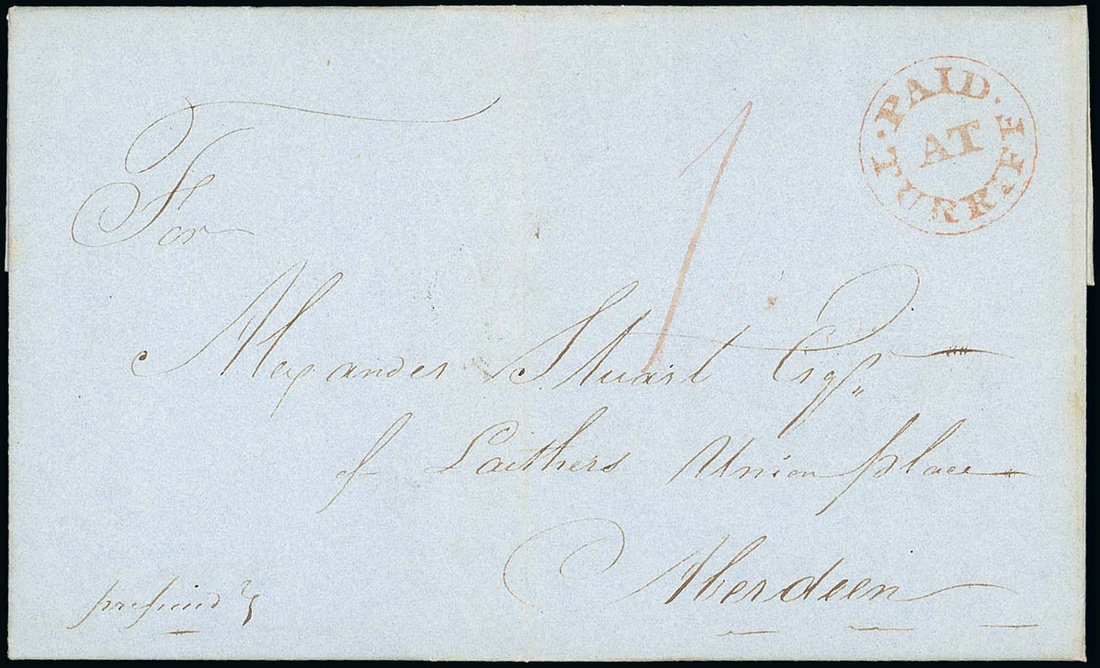 PAID
AT
TURRIFF
1
For
Alexander Stuart Esqr
of Laithers Union place
Aberdeen